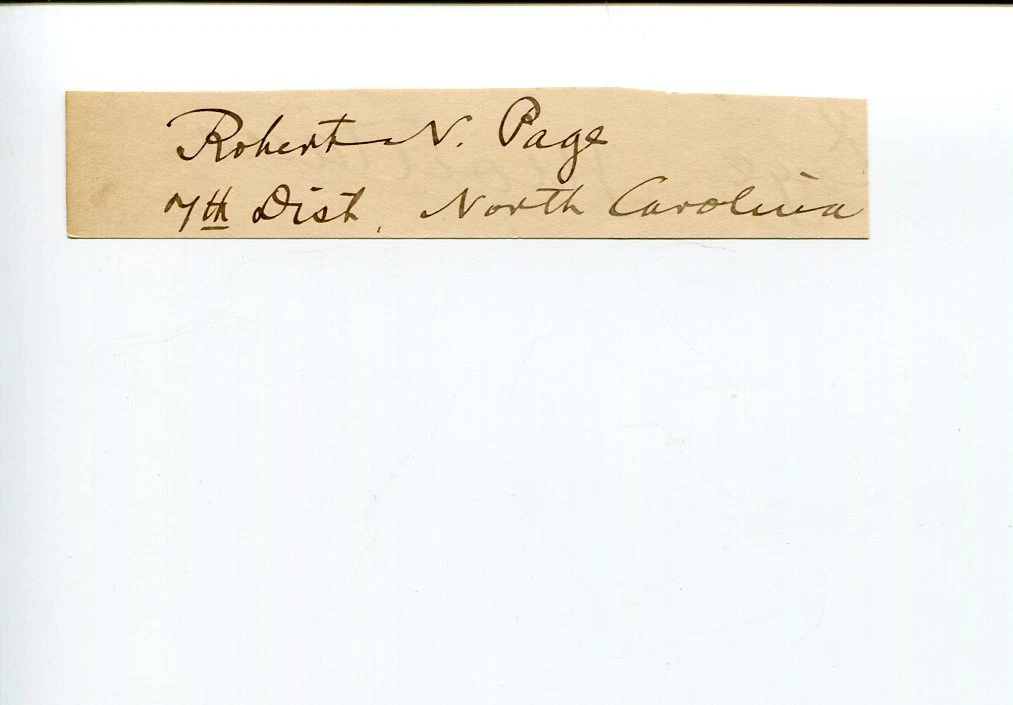 Robert N. Page
7th Dist. North Carolina